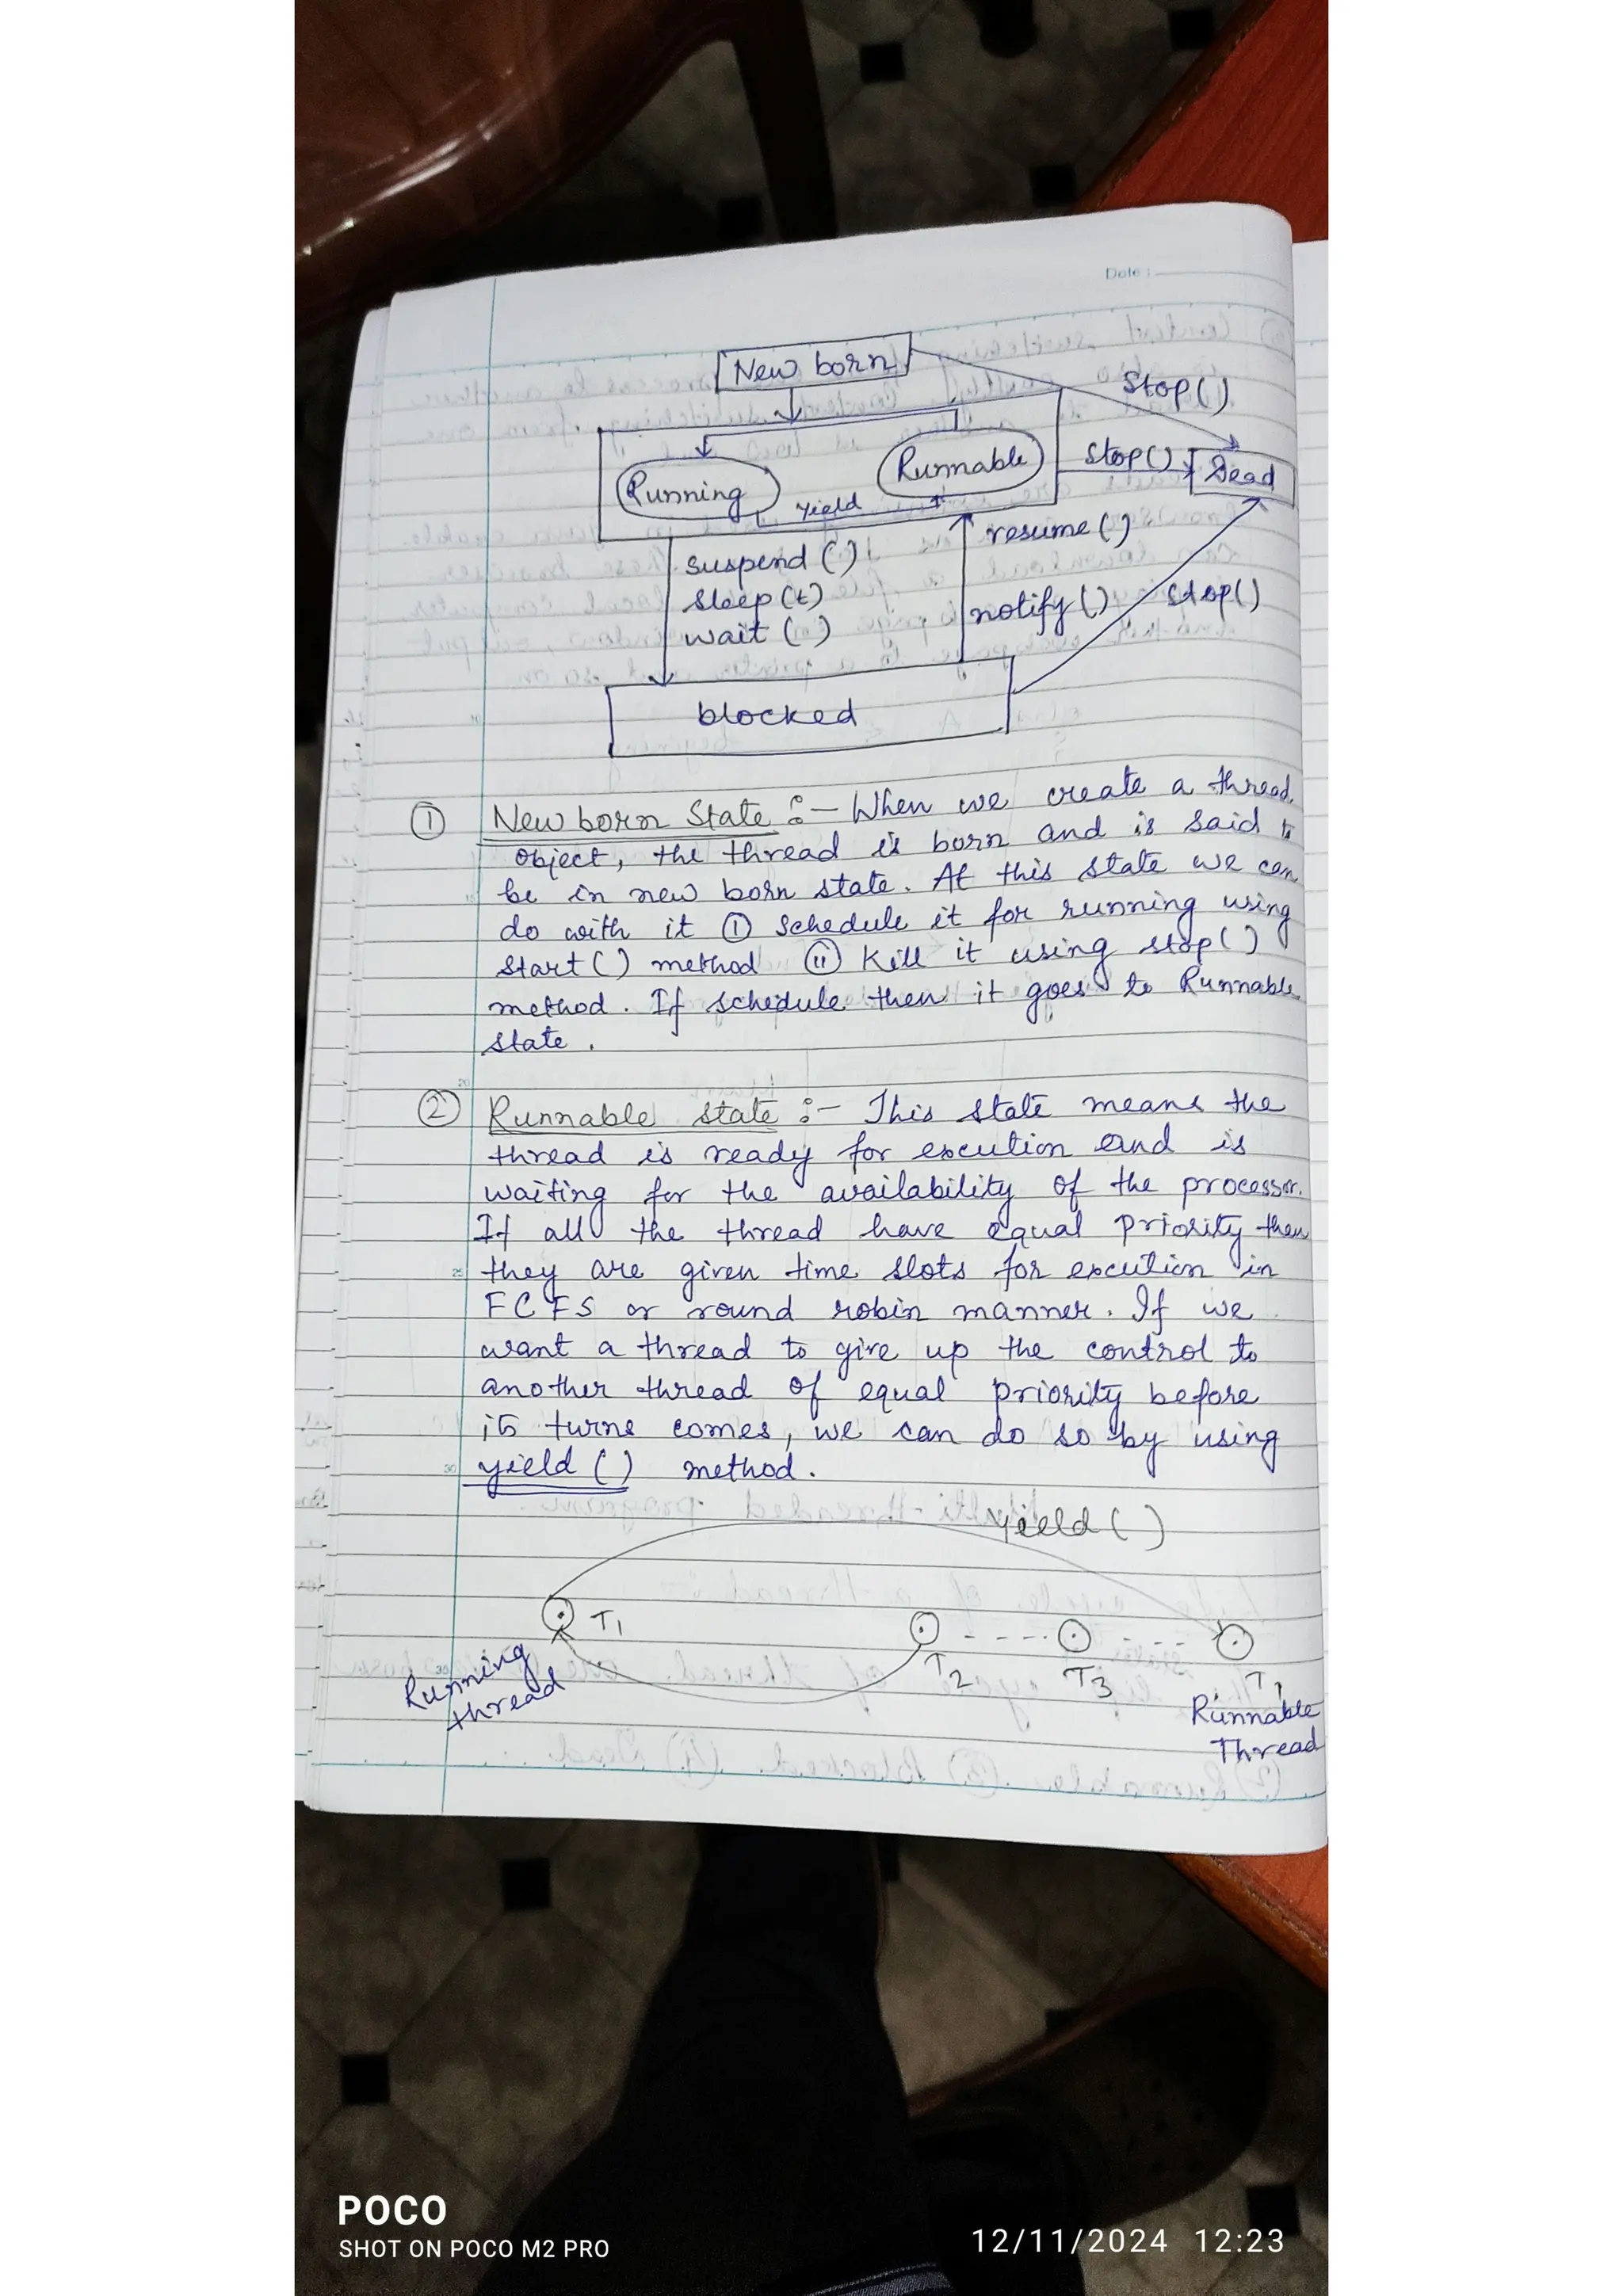 Date :
New born
Stop()
Running
Runnable
Stop()
Dead
Yield
suspend ()
sleep (t)
wait ()
resume ()
notify ()
stop()
blocked
① New born State :- When we create a thread
object, the thread is born and is said to
be in new born state. At this state we can
do with it ① Schedule it for running using
Start () method ⑪ Kill it using stop()
method. If schedule then it goes to Runnable
state.
② Runnable state :- This state means the
thread is ready for excution and is
waiting for the availability of the processor.
If all the thread have equal priority then
they are given time slots for excution in
FCFS or round robin manner. If we
want a thread to give up the control to
another thread of equal priority before
its turns comes, we can do so by using
yield () method.
yield ()
T1
T2
T3
T1
Running
thread
Runnable
Thread
POCO
SHOT ON POCO M2 PRO
12/11/2024 12:23